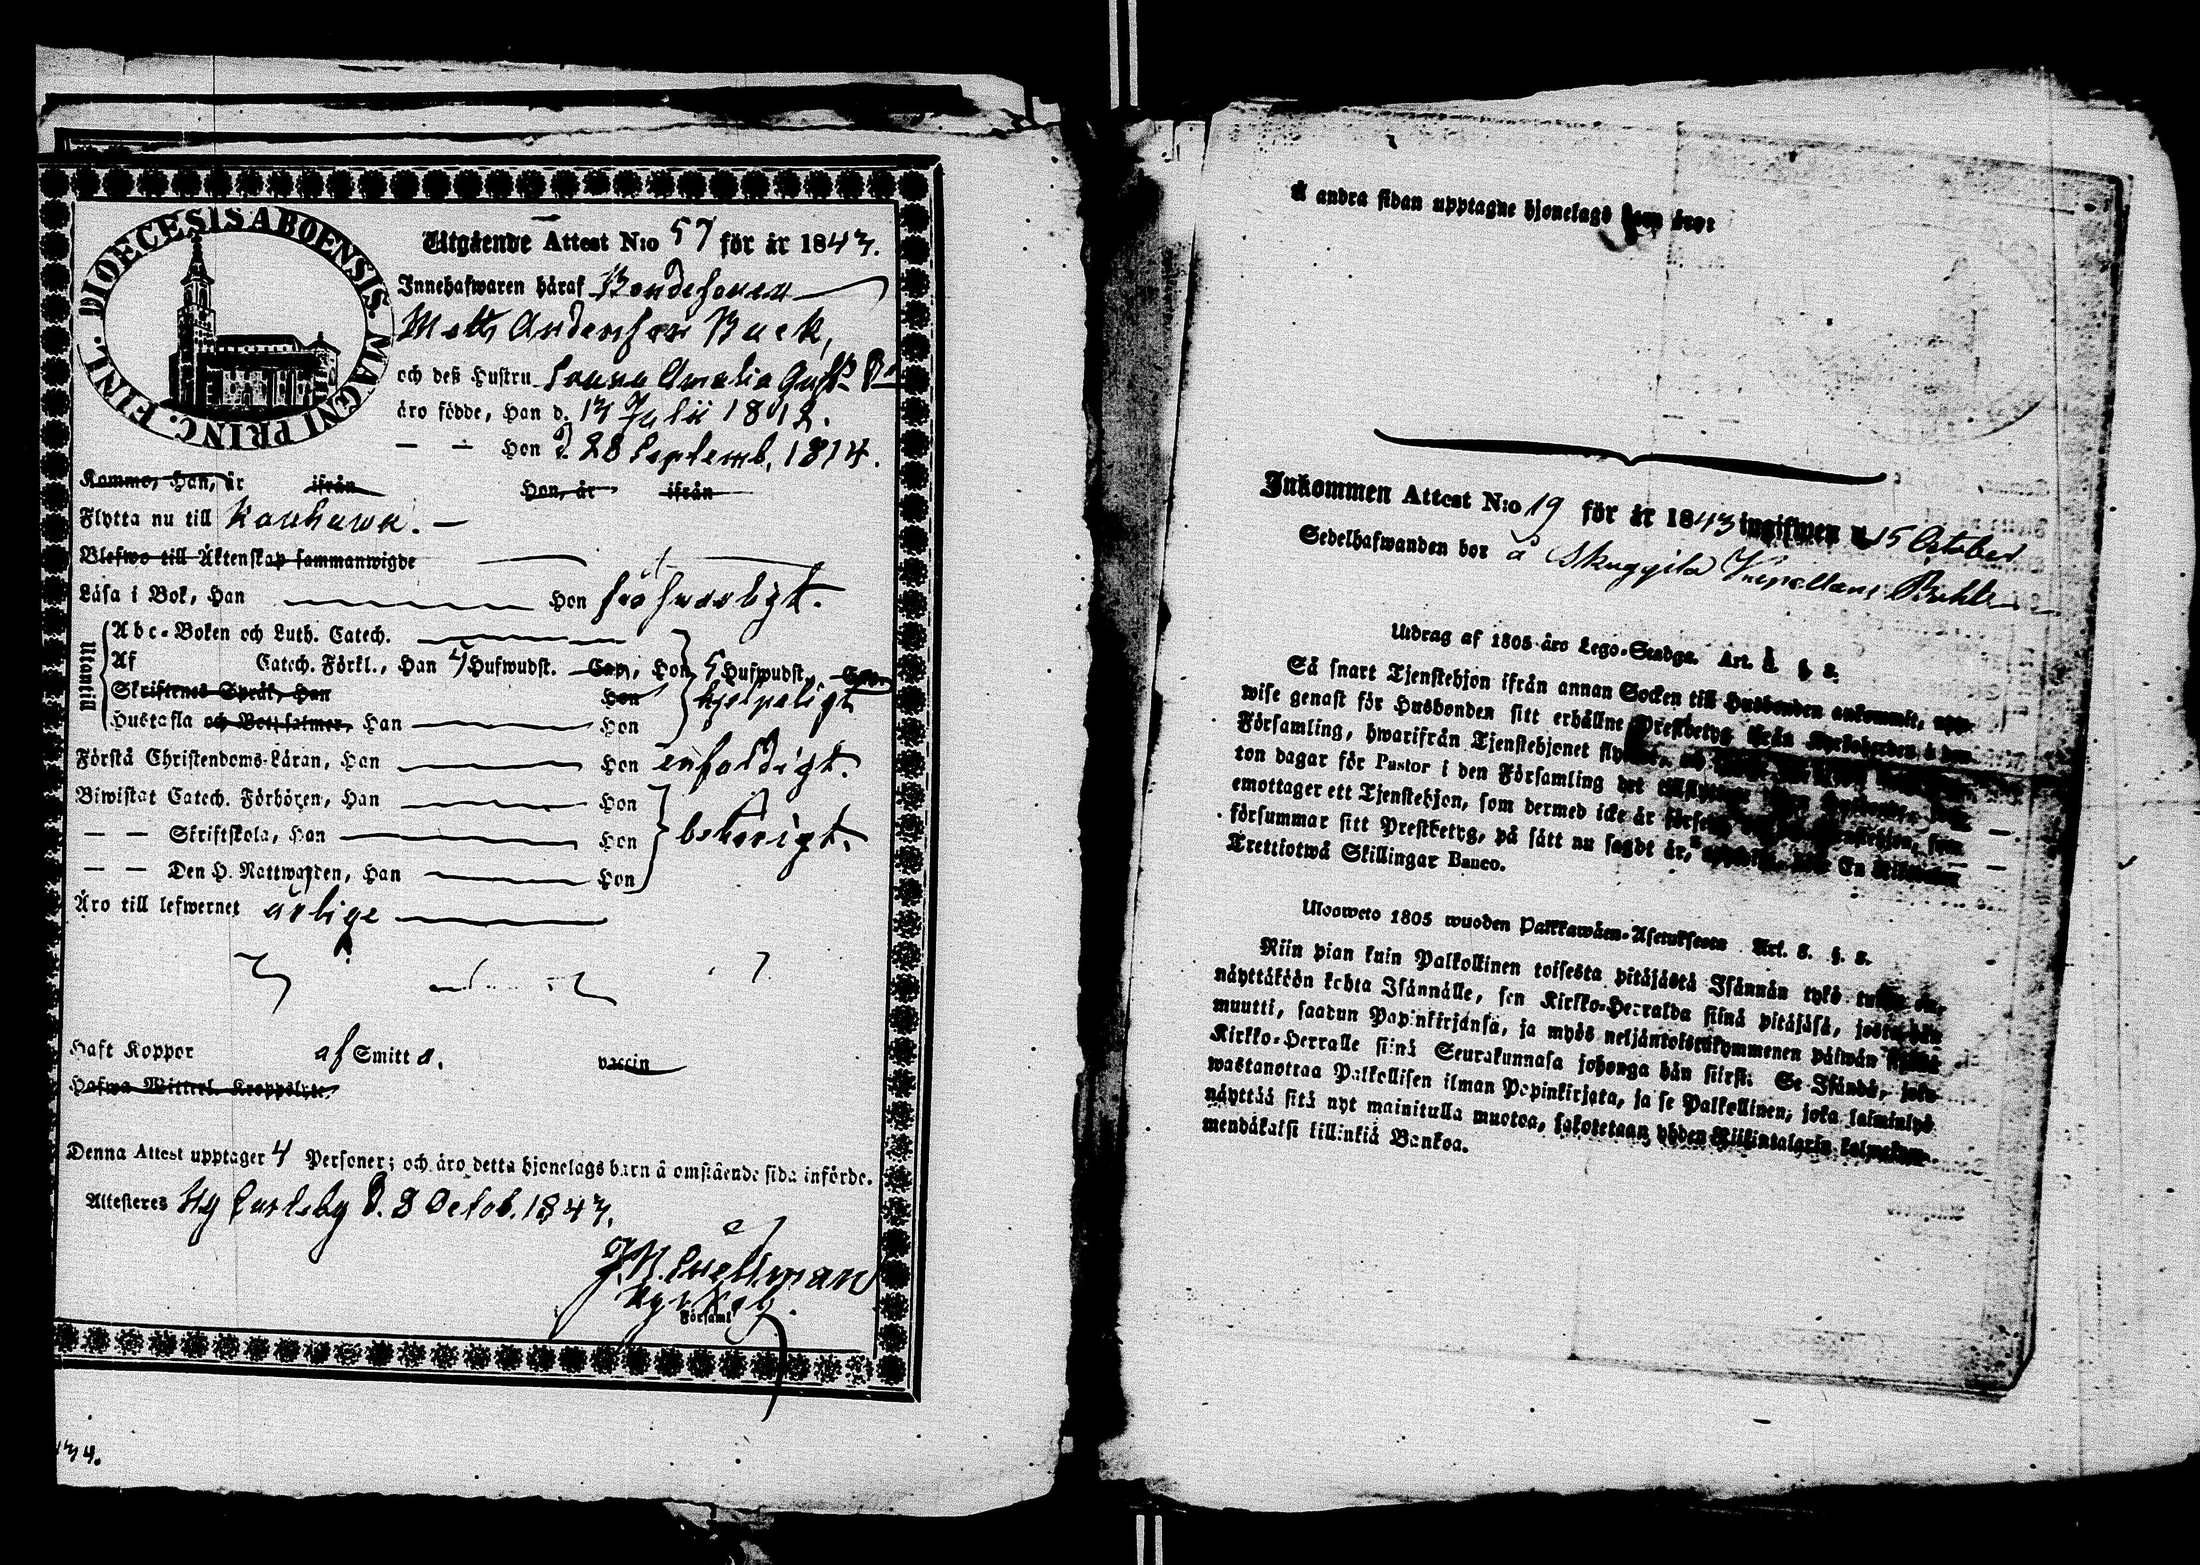 FINL. DIOECESIS ABOENSIS. MAGNI PRINC.
Utgående Attest N:o 57 för år 1843.
Innehafwaren häraf Bondesonen
Matts Andersson Back,
och deß Hustru Amalia
äro födde, Han d. 13 Julii 1812.
— — Hon d. 28 Septemb. 1814.
Komme, Han, år ifrån Hon, år ifrån
Flytta nu till Kauhawa.
Blefwo till Äktenskap sammanwigde
Läsa i Bok, Han Hon försvarligt.
Utantill
Abc-Boken och Luth. Catech.
Af Catech. Förkl., Han 5 Hufwudst. Cap., Hon 5 Hufwudst. Cap.
Skriftenes Språk, Han Hon hjelpeligt
Hustafla och Botpsalmer, Han Hon
Förstå Christendoms-Läran, Han Hon enfaldigt.
Biwistat Catech. Förhören, Han Hon
— — Skriftskola, Han Hon behörigt.
— — Den H. Nattwarden, Han Hon
Äro till lefwernet ärlige
Haft Koppor af Smitta. vaccin
Hafwa Witterl. Kroppslyte
Denna Attest upptager 4 Personer; och äro detta hjonelags barn å omstående sida införde.
Attesteres Ny Carleby d. 8 Octob. 1843.
Församl.
134.
Å andra sidan upptagne hjonelags barn äro:
Inkommen Attest N:o 19 för år 1843 ingifwen d 15 October
Sedelhafwanden bor å
Utdrag af 1805 års Lego-Stadga. Art. 8. §. 8.
Så snart Tjenstehjon ifrån annan Socken till Husbonden ankommit, upp-
wise genast för Husbonden sitt erhållne Prestbetyg ifrån Kyrkoherden i den
Församling, hwarifrån Tjenstehjonet
ton dagar för Pastor i den Församling det
emottager ett Tjenstehjon, som dermed icke är
försummar sitt Prestbetyg, på sätt nu sagdt är, En Riksdaler
Trettiotwå Skillingar Banco.
Ulosweto 1805 wuoden Palkkawäen-Asetuksesta Art. 8. §. 8.
Niin pian kuin Palkollinen toisesta pitäjästä Isännän tykö
näyttäköön kohta Isännälle, sen Kirkko-Herralda siinä pitäjäsä, josta hän
muutti, saadun Papinkirjansa, ja myös neljäntoistakymmenen päiwän
Kirkko-Herralle siinä Seurakunnasa johonga hän siirsi. Se Isändä, joka
wastanottaa Palkollisen ilman Papinkirjata, ja se Palkollinen, joka laiminlyö
näyttää sitä nyt mainitulla muotoa, sakotetaan yhden Riikintalarin kolmekym-
mendäkaksi killinkiä Bankoa.